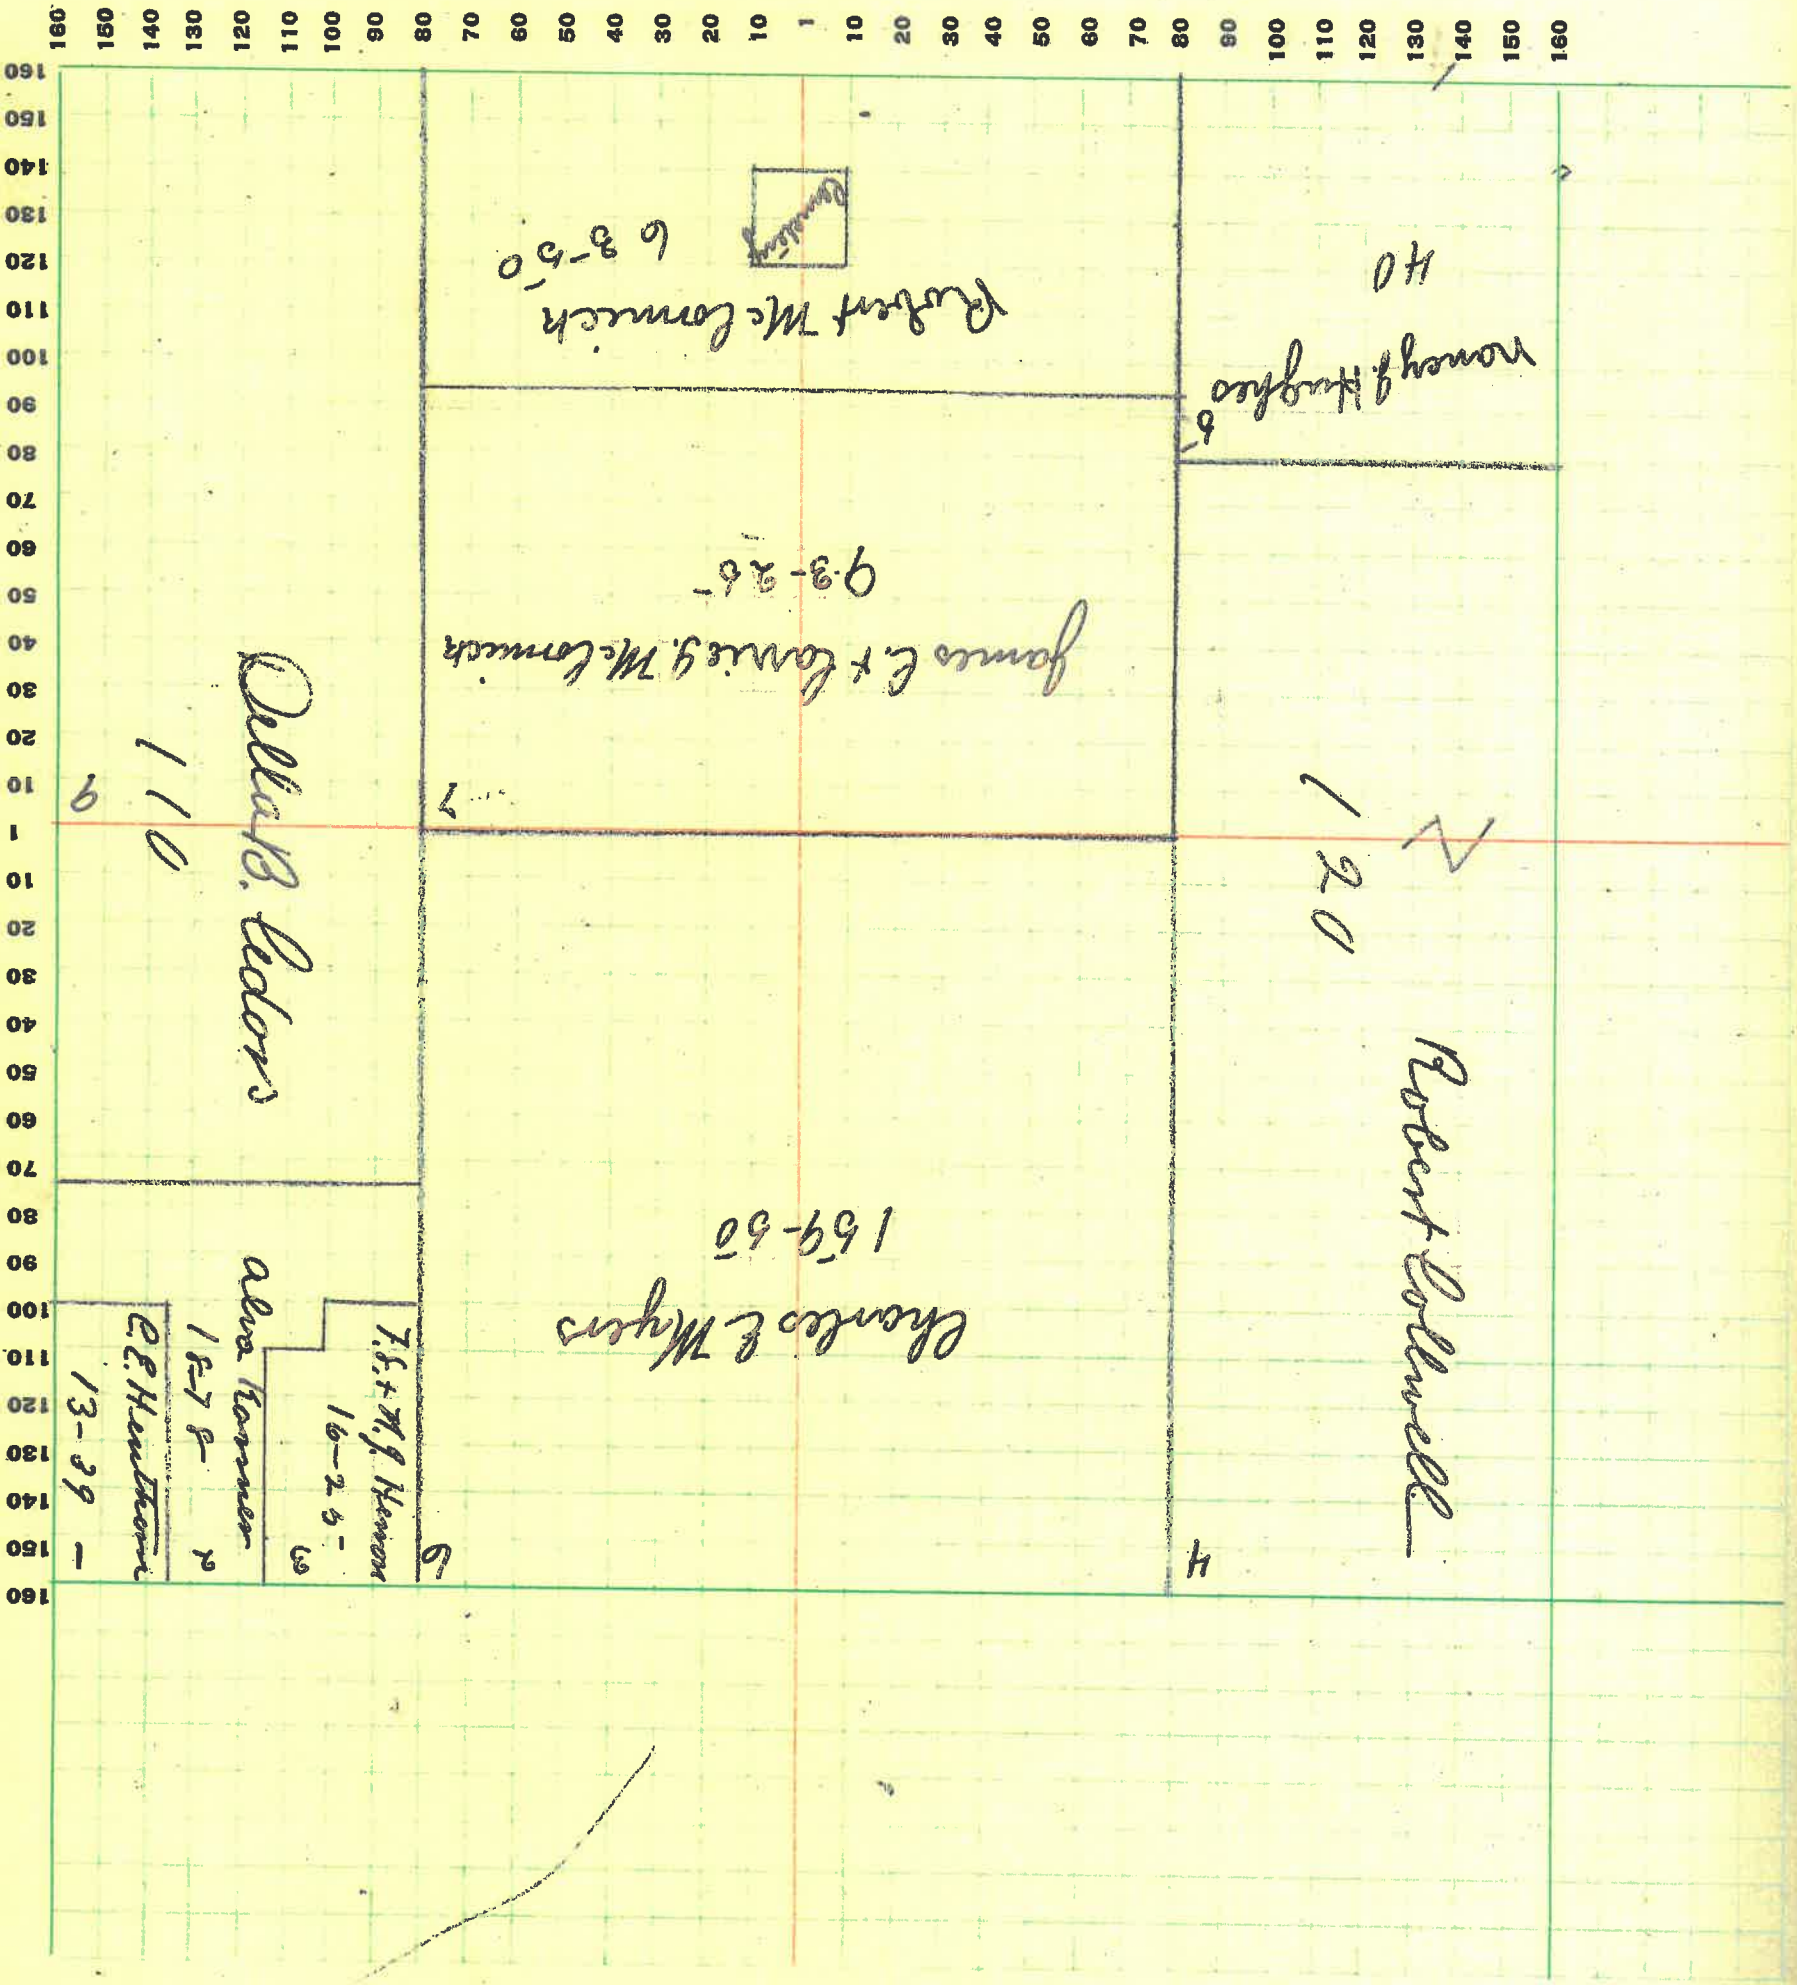 160 150 140 130 120 110 100 90 80 70 60 50 40 30 20 10 1 10 20 30 40 50 60 70 80 90 100 110 120 130 140 150 160
160 150 140 130 120 110 100 90 80 70 60 50 40 30 20 10 1 10 20 30 40 50 60 70 80 90 100 110 120 130 140 150 160
Robert McCormick
63-50
Cemetery
Nancy J. Hughes
40
5
James C. + Carrie J. McCormick
93-25
7
Della B. Cedors
110
9
N
120
Robert Collwell
4
Charles C Myers
159-50
6
T.E. + M.J.
16-25
3
Alva
18-78
2
C.E. Henthorn
13-39